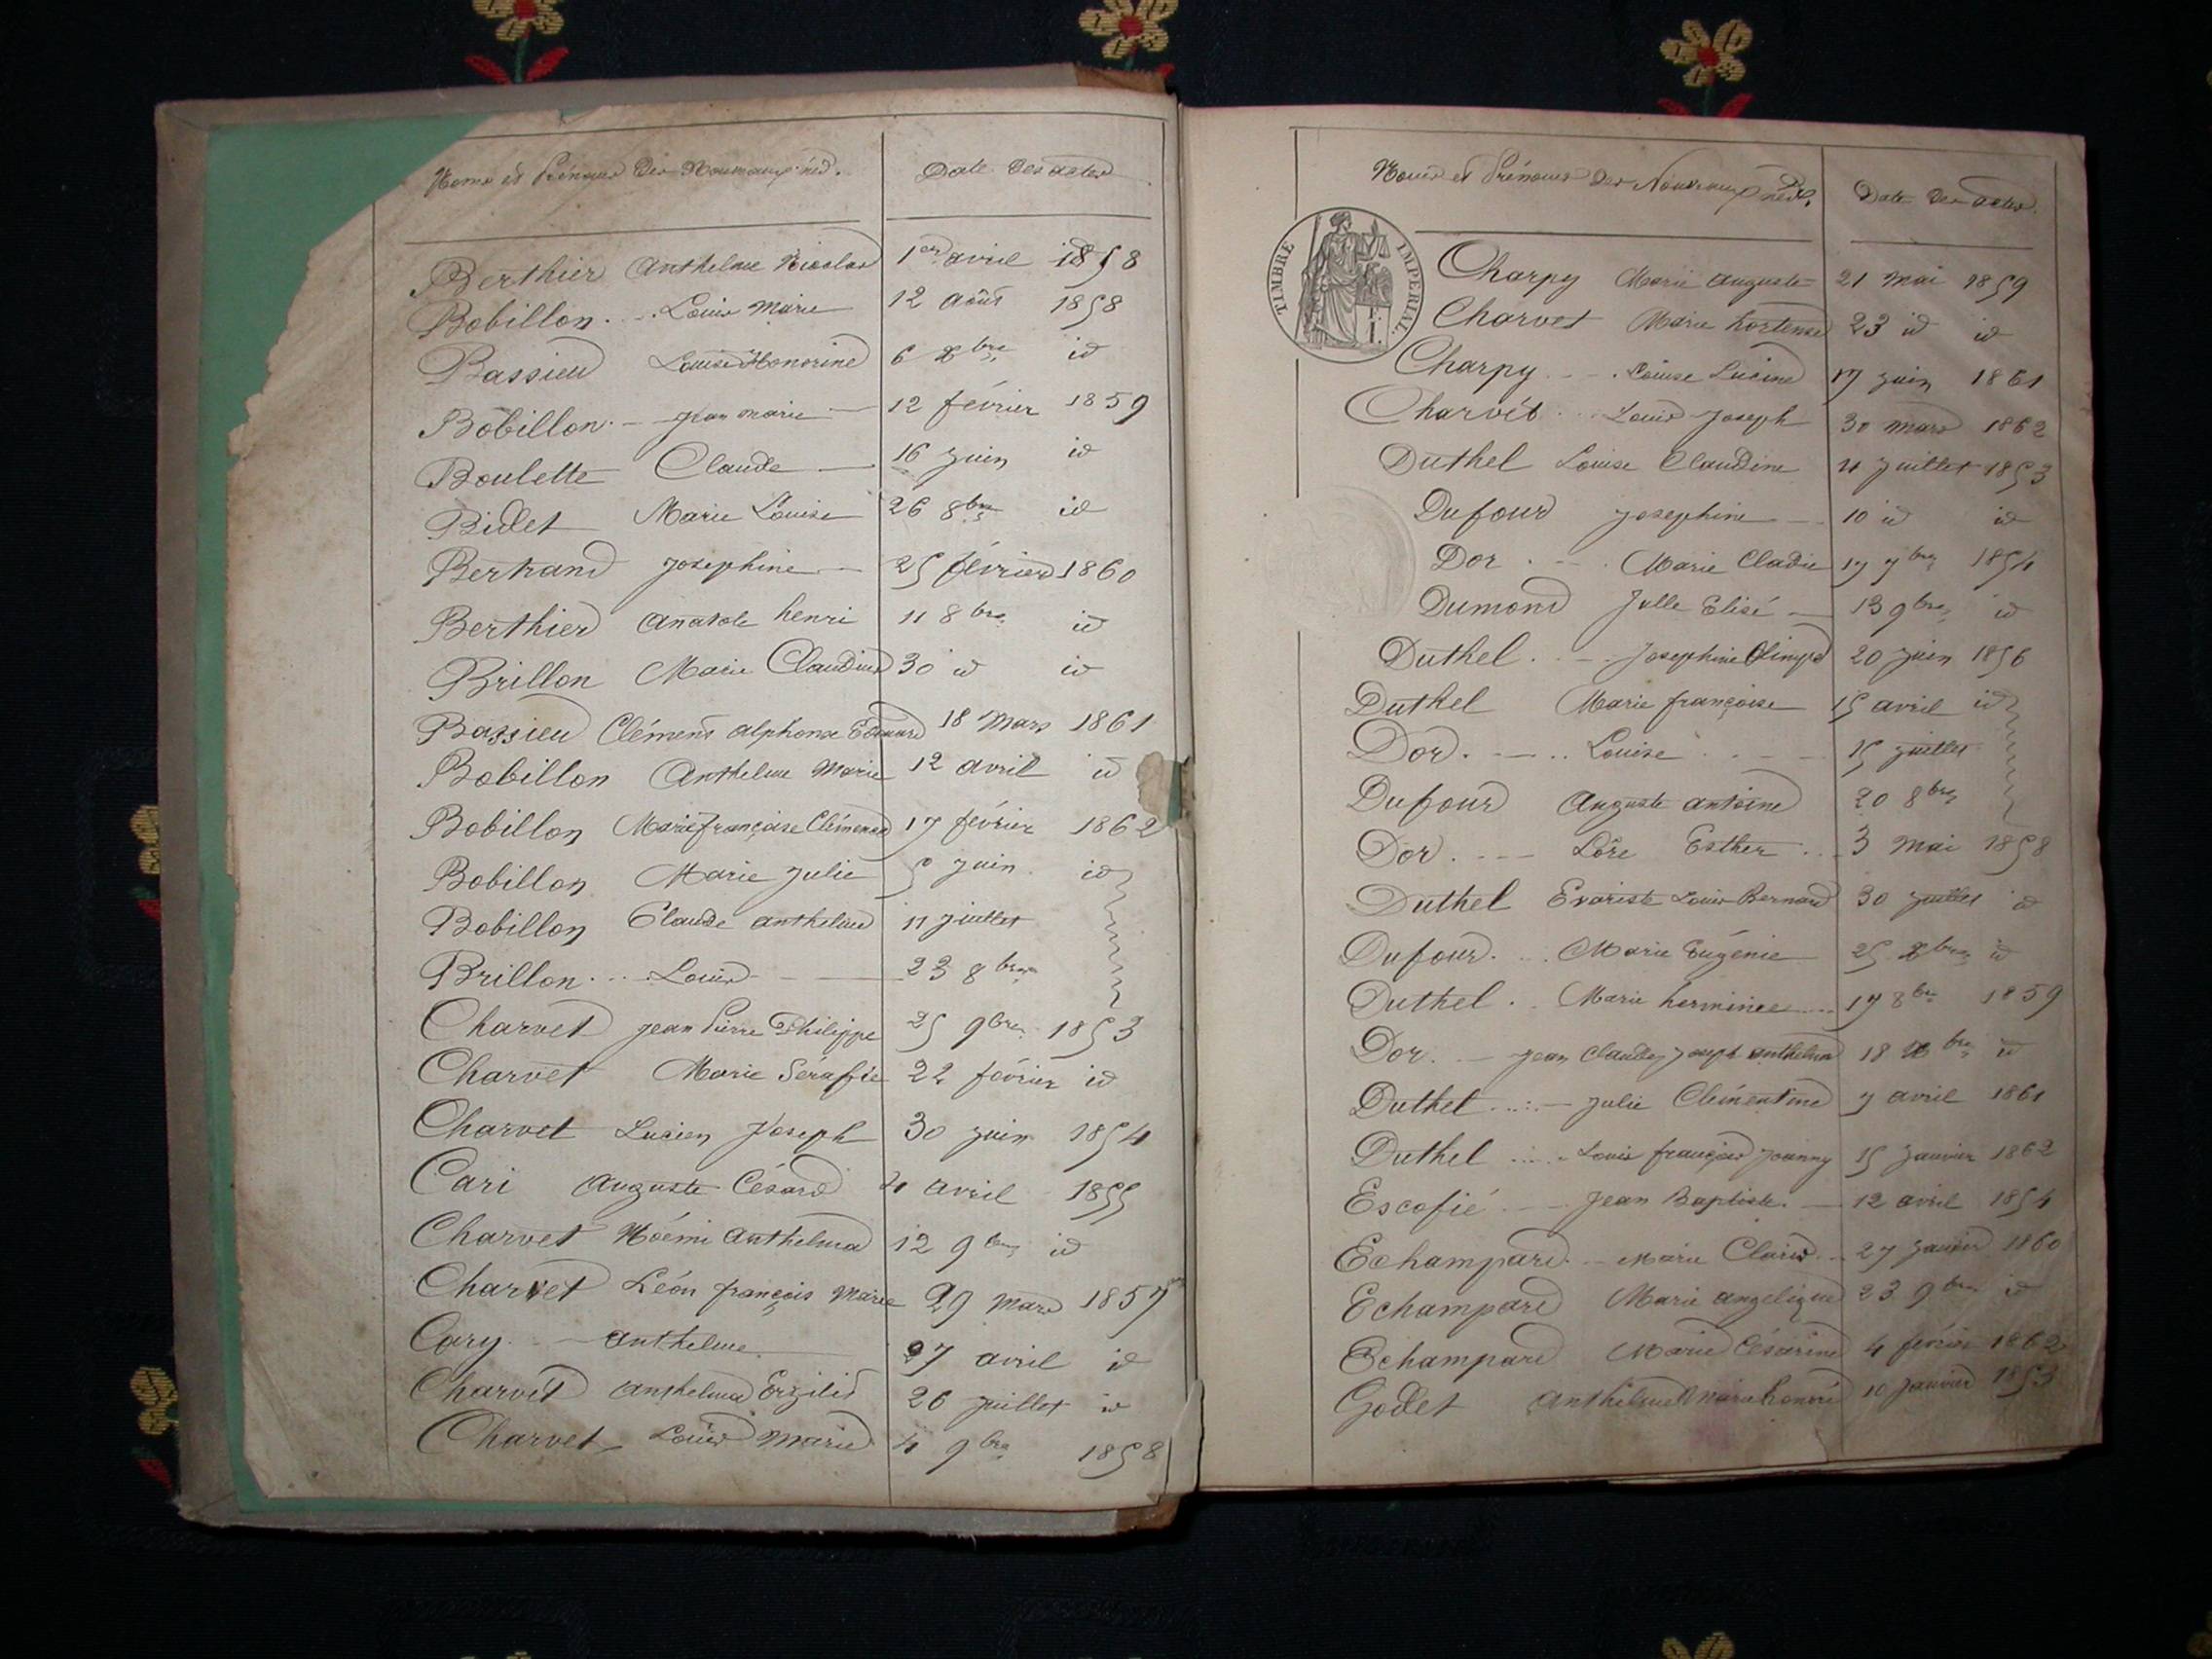 Noms et Prénoms des Nouveaux-nés. Date des actes.
Berthier Anthelme Nicolas 1er avril 1858
Bobillon Louis Marie 12 août 1858
Bassieu Louise Honorine 6 Xbre id
Bobillon Jean Marie 12 février 1859
Boulette Claude 16 juin id
Bidet Marie Louise 26 8bre id
Bertrand Josephine 25 février 1860
Berthier Anatole henri 11 8bre id
Brillon Marie Claudine 30 id id
Bassieu Clément alphonse Edouard 18 Mars 1861
Bobillon Anthelme Marie 12 avril id
Bobillon Marie françoise Clémence 17 février 1862
Bobillon Marie Julie 5 juin id
Bobillon Claude anthelme 11 juillet
Brillon Louis 23 8bre
Charvet Jean Pierre Philippe 25 9bre 1853
Charvet Marie Sérafie 22 février id
Charvet Lucien Joseph 30 juin 1854
Cari Auguste César 4 avril 1855
Charvet Noémie Anthelma 12 9bre id
Charvet Léon françois Marie 29 Mars 1857
Cary anthelme 27 avril id
Charvet Anthelma 26 juillet id
Charvet Louis Marie 4 9bre 1858
Noms et Prénoms des Nouveaux nés. Date des actes.
TIMBRE IMPÉRIAL
Charpy Marie Auguste 21 Mai 1859
Charvet Marie hortense 23 id id
Charpy Louise Lucine 17 juin 1861
Charvét Louis Joseph 30 mars 1862
Duthel Louise Claudine 4 juillet 1853
Dufour Josephine 10 id id
Dor Marie Cladie 17 7bre 1854
Dumond Julle Elisé 13 9bre id
Duthel Josephine Olimpe 20 juin 1856
Duthel Marie françoise 15 avril id
Dor Louise 15 juillet
Dufour Auguste antoine 20 8bre
Dor Lôre Esther 3 Mai 1858
Duthel Evariste Louis Bernard 30 juillet id
Dufour Marie Eugénie 25 Xbre id
Duthel Marie herminie 17 8bre 1859
Dor Jean Claude Joseph anthelme 18 Xbre id
Duthel Julie Clémentine 7 avril 1861
Duthel Louis françois Joanny 15 Janvier 1862
Escofié Jean Baptiste 12 avril 1854
Echampard Marie Claire 27 Janvier 1860
Echampard Marie angelique 23 9bre id
Echampard Marie Césarine 4 février 1862
Godet Anthelme Marie honoré 10 Janvier 1853